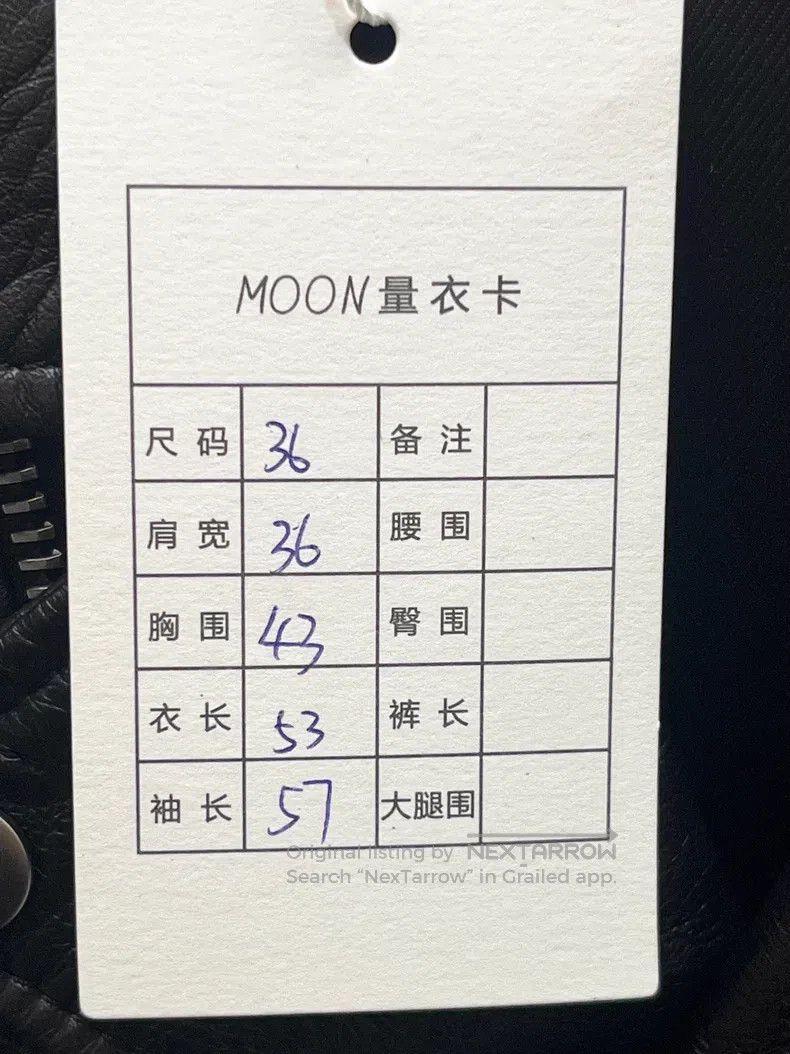 MOON量衣卡
尺码 36 备注
肩宽 36 腰围
胸围 43 臀围
衣长 53 裤长
袖长 57 大腿围
Original listing by NEXTARROW
Search “NexTarrow” in Grailed app.